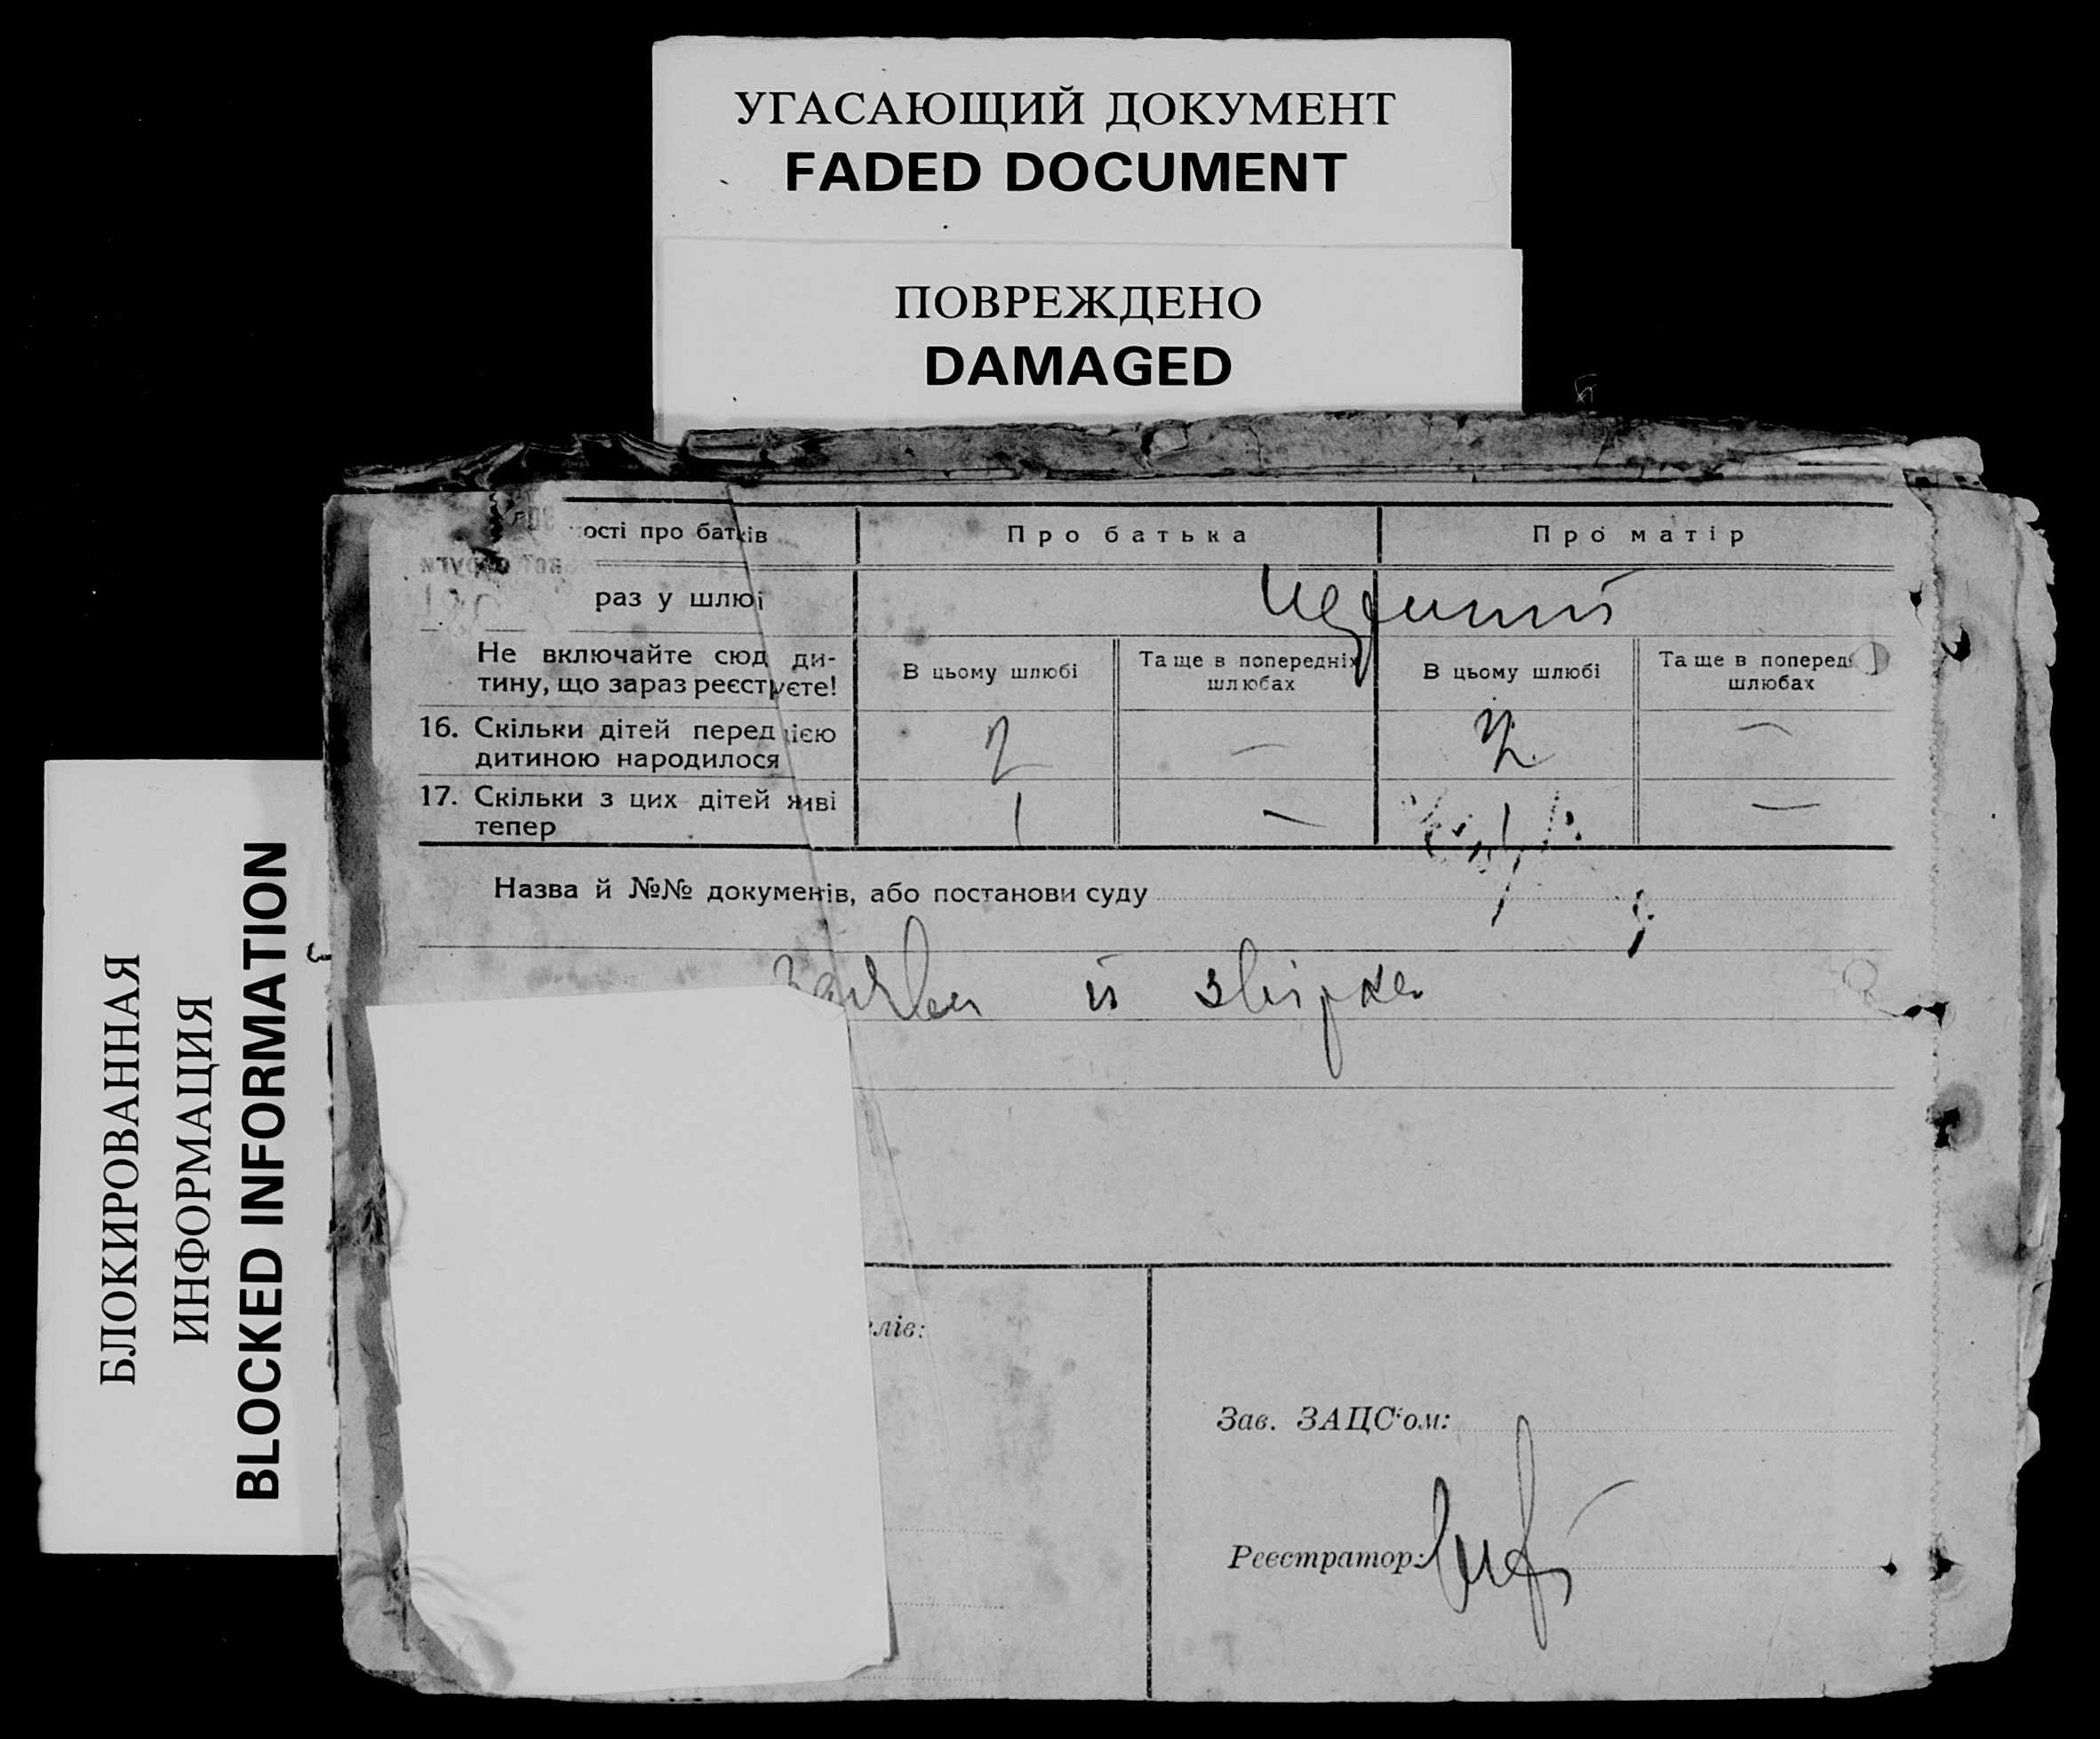 УГАСАЮЩИЙ ДОКУМЕНТ
FADED DOCUMENT
ПОВРЕЖДЕНО
DAMAGED
БЛОКИРОВАННАЯ
ИНФОРМАЦИЯ
BLOCKED INFORMATION
ості про батків
Про батька
Про матір
раз у шлюбі
Не включайте сюд ди-
тину, що зараз реєструєте!
В цьому шлюбі
Та ще в попередніх
шлюбах
В цьому шлюбі
Та ще в поперед
шлюбах
16. Скільки дітей перед цією
дитиною народилося
2 — 2 —
17. Скільки з цих дітей живі
тепер
1 — 1 —
Назва й №№ документів, або постанови суду
й
елів:
Зав. ЗАЦС'ом:
Реєстратор: